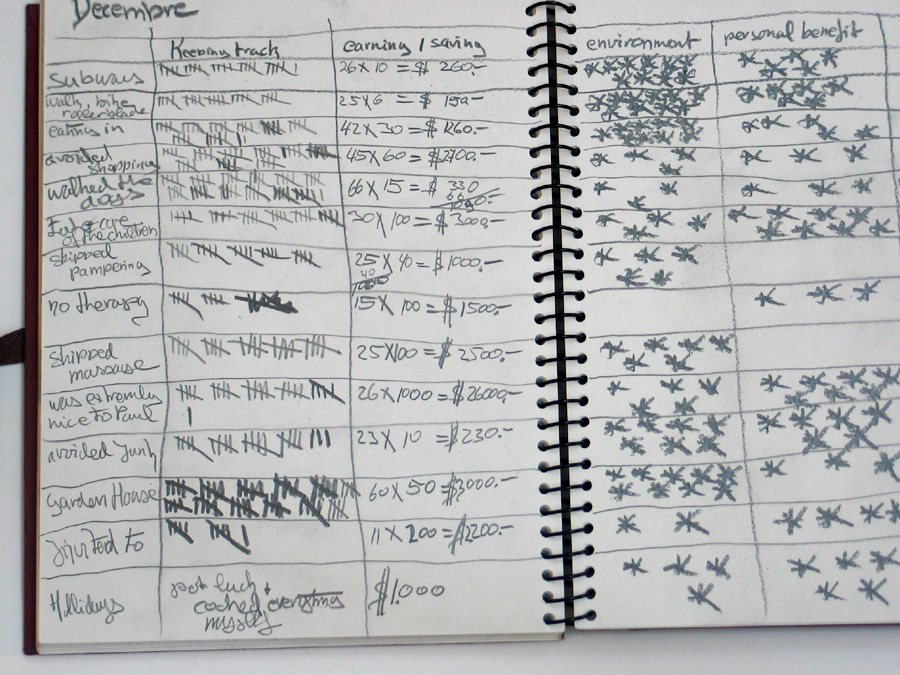 Decembre
Keeping track
earning / saving
environment
personal benefit
subways
26 x 10 = $ 260.-
walk, bike
rollerblade
25 x 6 = $ 150-
eating in
42 x 30 = $1260.-
avoided
shopping
45 x 60 = $2700.-
walked the
dogs
66 x 15 = $ 330
660
1090.-
Take care
of the children
30 x 100 = $ 3000.-
skipped
pampering
25 x 40 = $1000.-
40
1000
no therapy
15 x 100 = $1500.-
skipped
massage
25x100 = $ 2500.-
was extremly
nice to Paul
26 x 1000 = $26000,-
avoided junk
23 x 10 = $230.-
Garden House
60 x 50 = $3000.-
Invited to
11 x 200 = $2200.-
Hollidays
pot luck +
cooked everything
myself
$1,000